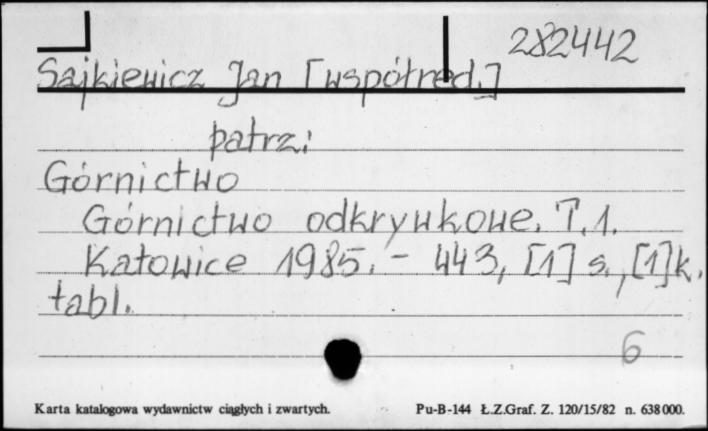 282442
Sajkiewicz Jan [współred.]
patrz:
Górnictwo
Górnictwo odkrywkowe. T.1.
Katowice 1985. - 443, [1] s., [1] k.
tabl.
6
Karta katalogowa wydawnictw ciągłych i zwartych. Pu-B-144 Ł.Z.Graf. Z. 120/15/82 n. 638 000.